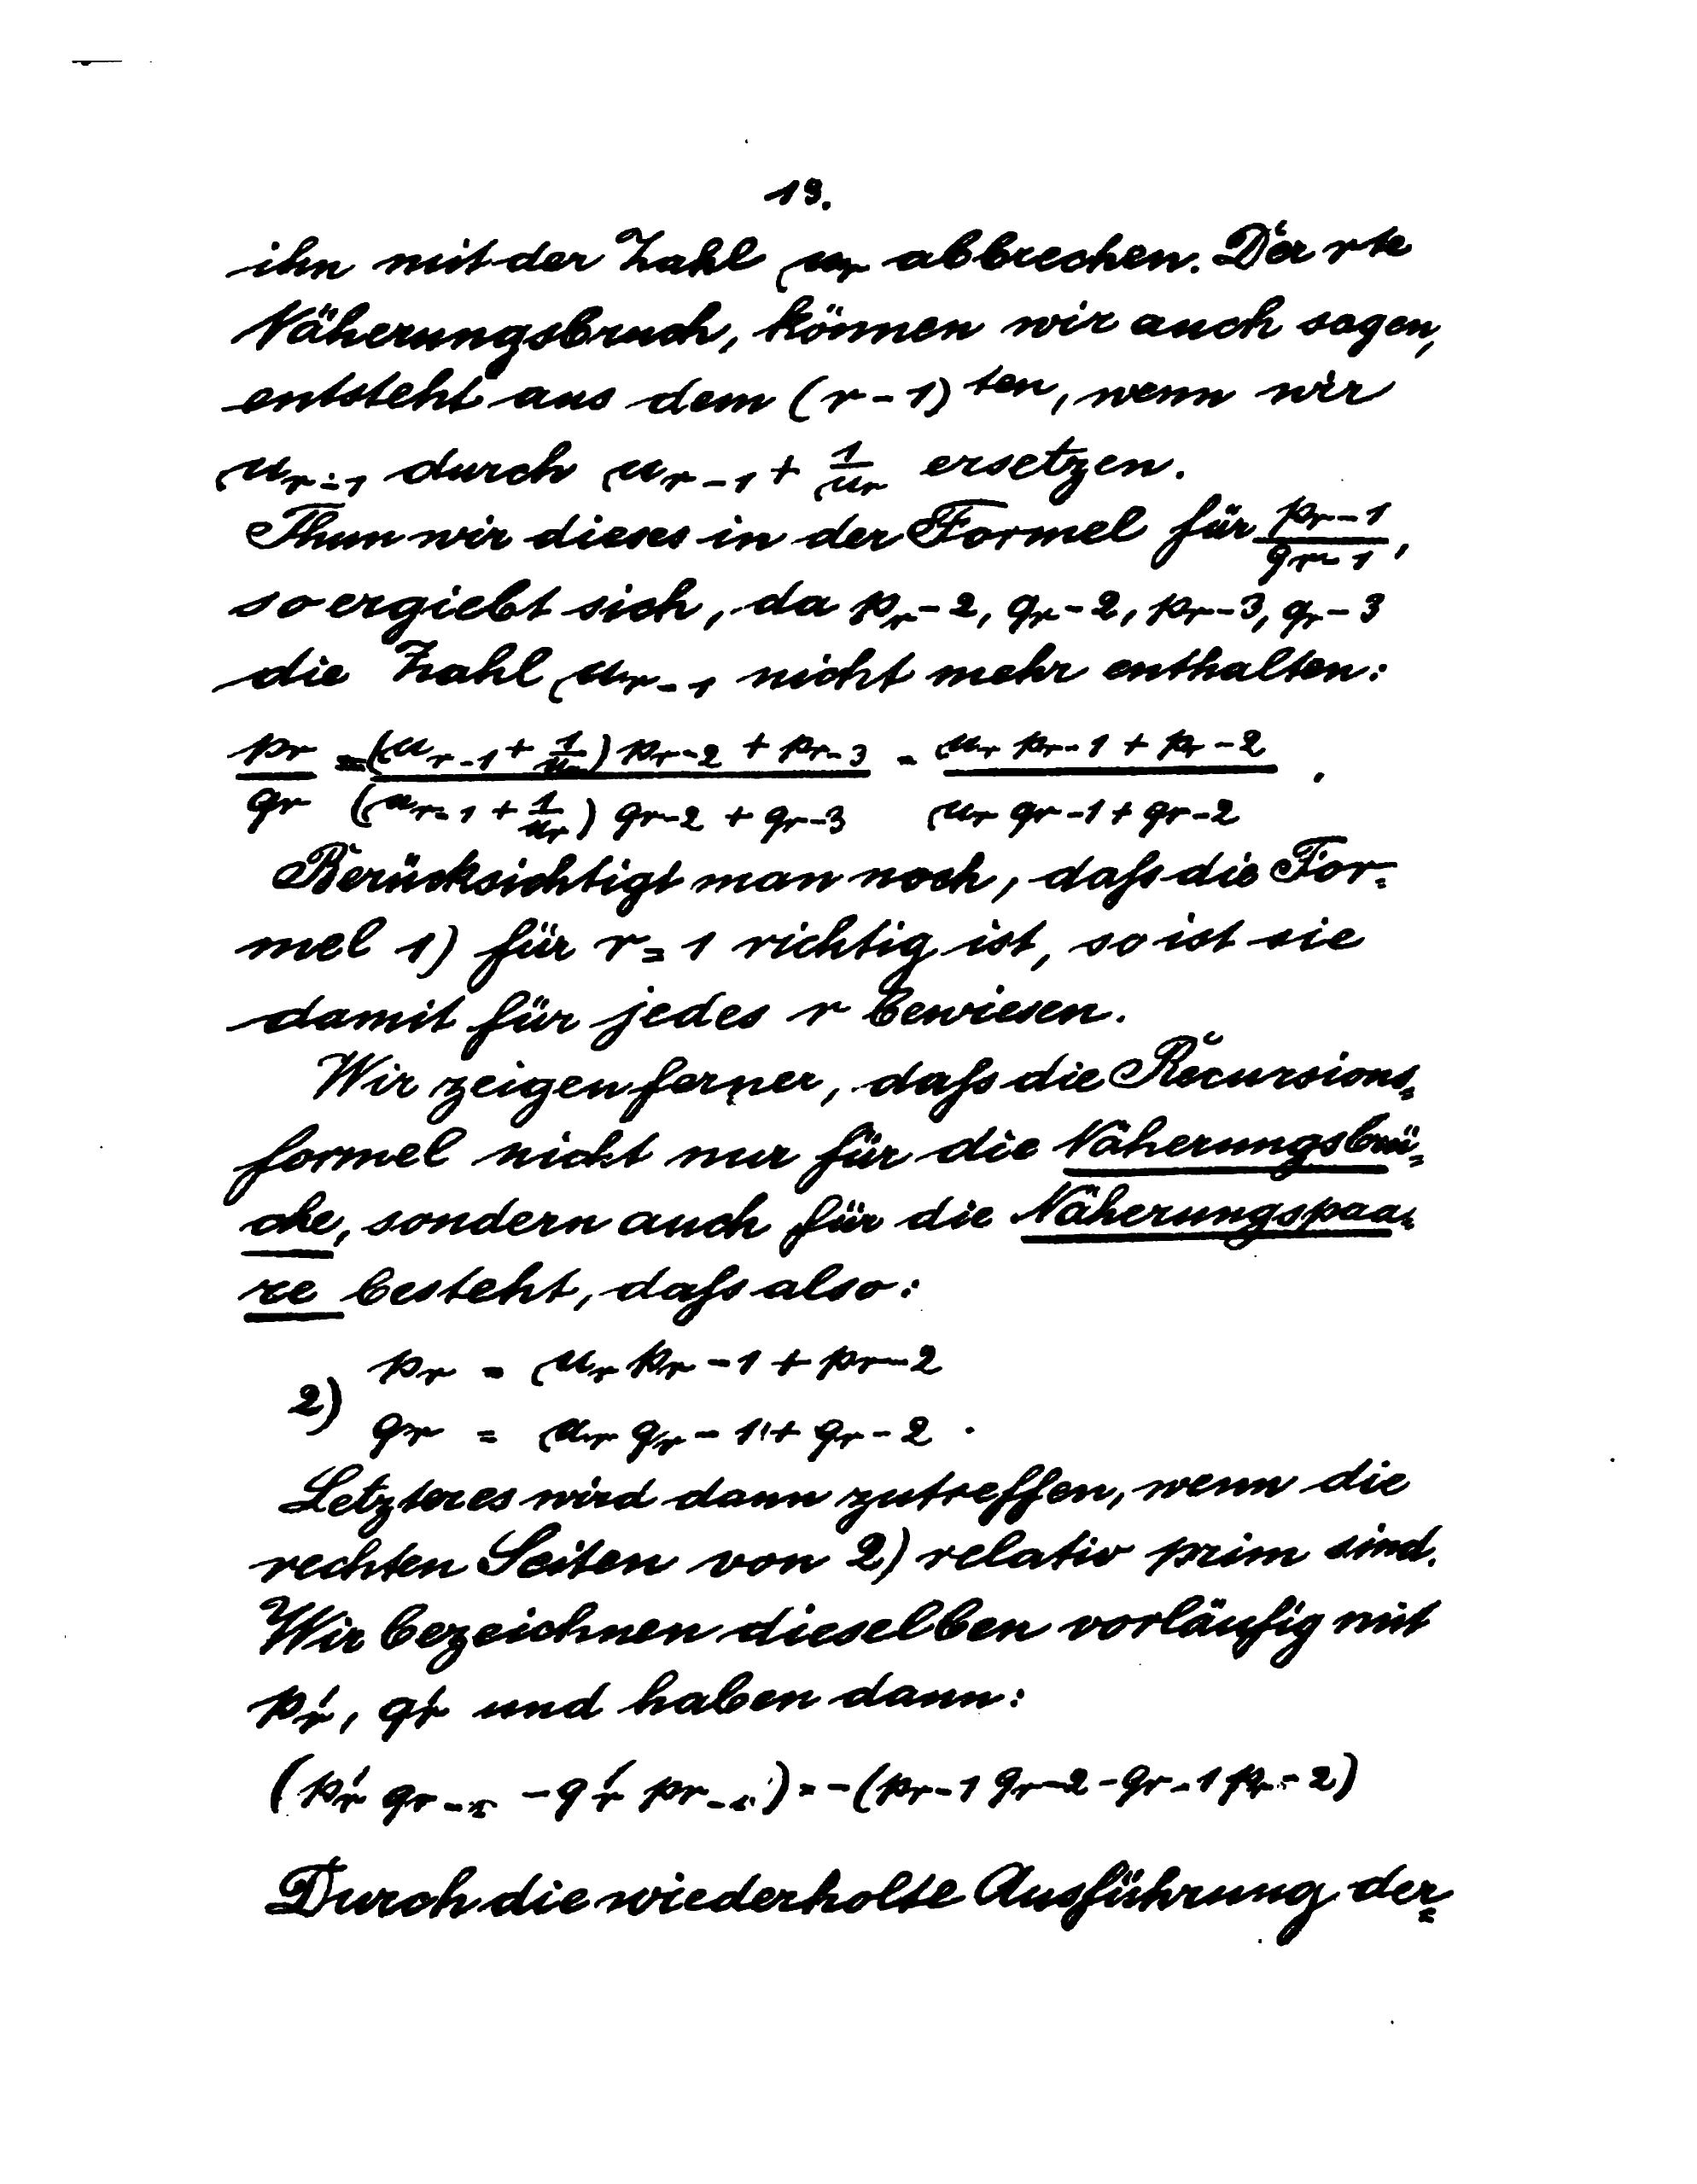 19.
ihn mit der Zahl μr abbrechen. Der rte
Näherungsbruch, können wir auch sagen,
entsteht aus dem (r-1)ten, wenn wir
μr-1 durch μr-1 + 1/μr ersetzen.
Thun wir dieses in der Formel für pr-1/qr-1,
so ergiebt sich, da pr-2, qr-2, pr-3, qr-3
die Zahl μr-1 nicht mehr enthalten:
pr/qr = ((μr-1 + 1/μr) pr-2 + pr-3)/((μr-1 + 1/μr) qr-2 + qr-3) = (μr pr-1 + pr-2)/(μr qr-1 + qr-2).
Berücksichtigt man noch, daſs die For=
mel 1) für r=1 richtig ist, so ist sie
damit für jedes r bewiesen.
Wir zeigen ferner, daſs die Recursions=
formel nicht nur für die Näherungsbrü=
che, sondern auch für die Näherungspaa=
re besteht, daſs also:
pr = μr pr-1 + pr-2
2)
qr = μr qr-1 + qr-2.
Letzteres wird dann zutreffen, wenn die
rechten Seiten von 2) relativ prim sind.
Wir bezeichnen dieselben vorläufig mit
p'r, q'r und haben dann:
(p'r qr-1 - q'r pr-1) = -(pr-1 qr-2 - qr-1 pr-2)
Durch die wiederholte Ausführung der=